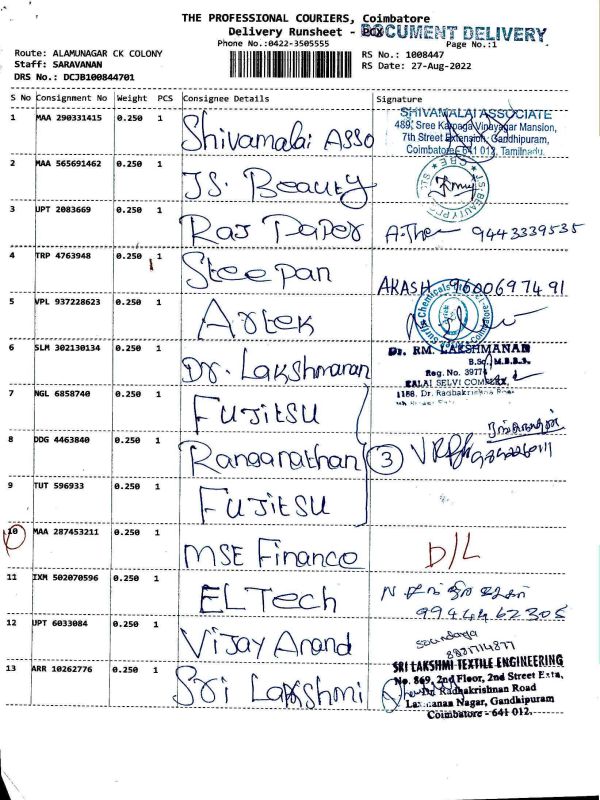 THE PROFESSIONAL COURIERS, Coimbatore
Delivery Runsheet -
DOCUMENT DELIVERY
Phone No.:0422-3505555
Page No.:1
Route: ALAMUNAGAR CK COLONY
Staff: SARAVANAN
DRS No.: DCJB100844701
RS No.: 1008447
RS Date: 27-Aug-2022
S No Consignment No Weight PCS Consignee Details Signature
1 MAA 290331415 0.250 1 Shivamalai ASSO
SHIVAMALAI ASSOCIATE
489, Sree Karpaga Vinayagar Mansion,
7th Street Extension, Gandhipuram,
Coimbatore - 641 012, Tamilnadu.
2 MAA 565691462 0.250 1 JS. Beauty
3 UPT 2083669 0.250 1 Raj Paper 9443339535
4 TRP 4763948 0.250 1 Steepan AKASH 9600697491
5 VPL 937228623 0.250 1 Artek
6 SLM 302130134 0.250 1 Dr. Lakshmanan
Dr. RM. LAKSHMANAN
B.Sc., M.B.B.S.
Reg. No. 39774
KALAI SELVI COMPLEX,
1186, Dr. Radhakrishna Road
7 NGL 6858740 0.250 1 FUJITSU
8 DDG 4463840 0.250 1 Ranganathan 3
9 TUT 596933 0.250 1 FUJITSU
10 MAA 287453211 0.250 1 MSE Finance D/L
11 IXM 502070596 0.250 1 EL Tech
9944462305
12 UPT 6033084 0.250 1 Vijay Anand
13 ARR 10262776 0.250 1 Sri Lakshmi
SRI LAKSHMI TEXTILE ENGINEERING
No. 869, 2nd Floor, 2nd Street Extn,
Dr. Radhakrishnan Road
Laxmanan Nagar, Gandhipuram
Coimbatore - 641 012.